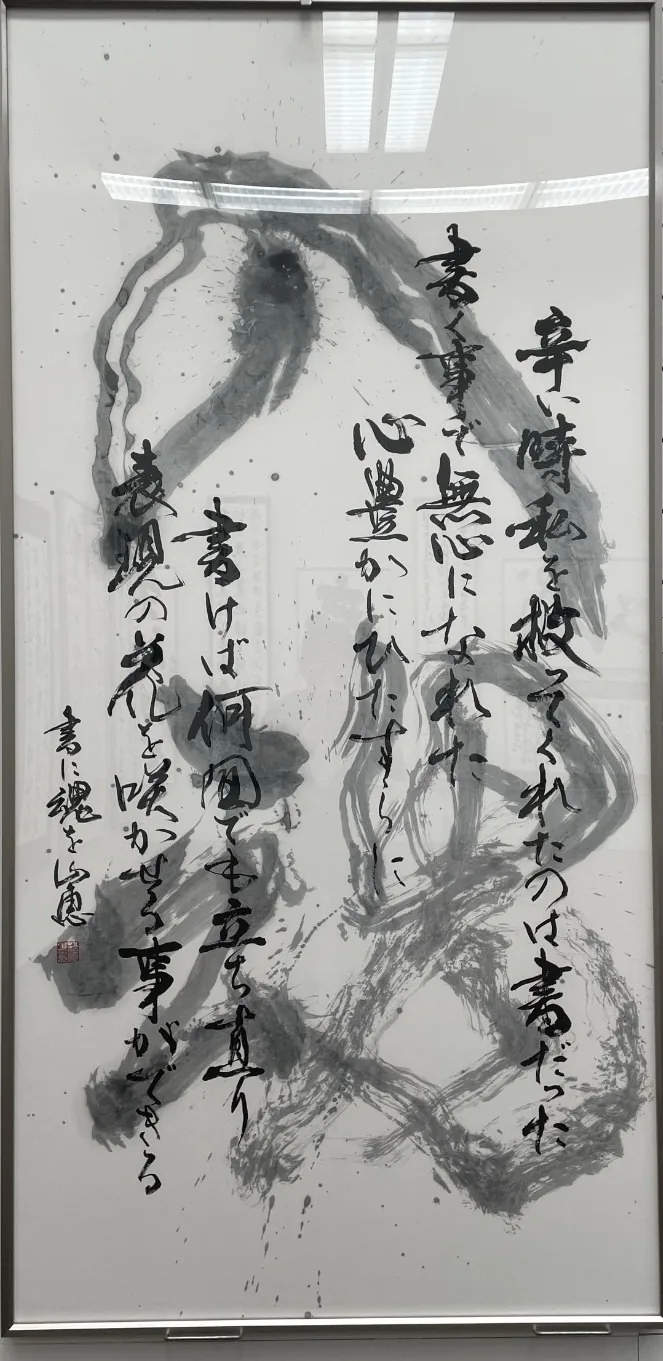 辛い時私を救ってくれたのは書だった
書く事で無心になれた
心豊かにひたすらに
書けば何回でも立ち直り
表現の花を咲かせる事ができる
書に魂を